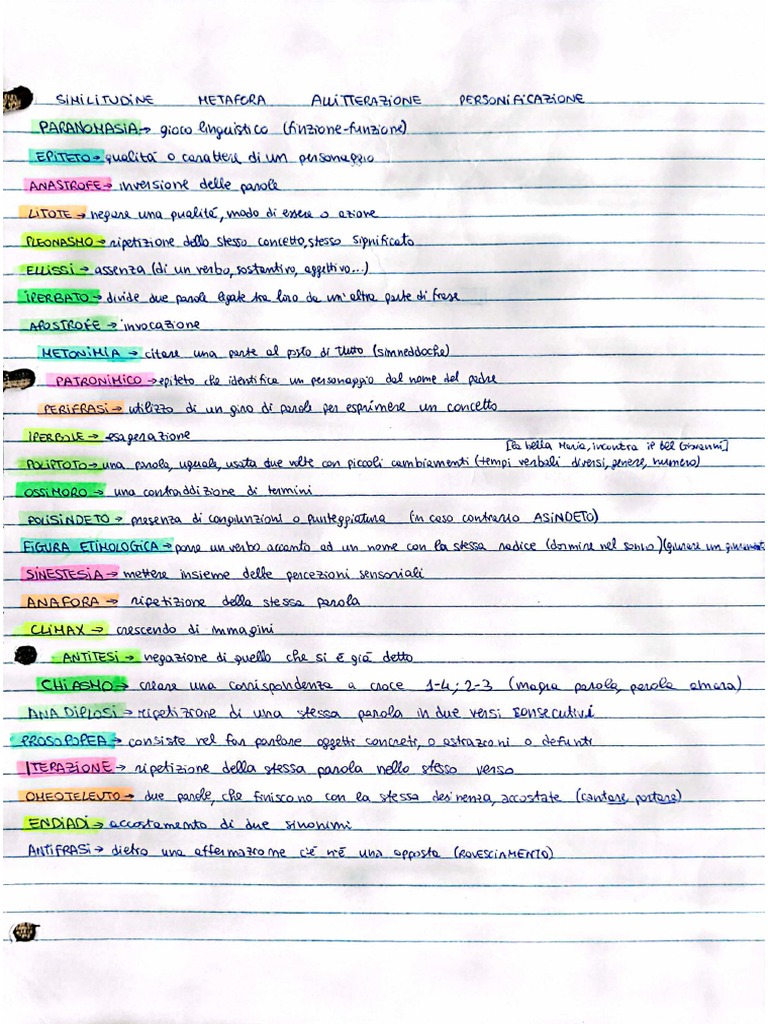 SIMILITUDINE METAFORA ALLITTERAZIONE PERSONIFICAZIONE
PARANOMASIA → gioco linguistico (finzione-funzione)
EPITETO → qualità o carattere di un personaggio
ANASTROFE → inversione delle parole
LITOTE → negare una qualità, modo di essere o azione
PLEONASMO → ripetizione dello stesso concetto, stesso significato
ELLISSI → assenza (di un verbo, sostantivo, aggettivo...)
IPERBATO → divide due parole legate tra loro da un'altra parte di frase
APOSTROFE → invocazione
METONIMIA → citare una parte al posto di tutto (simneddoche)
PATRONIMICO → epiteto che identifica un personaggio dal nome del padre
PERIFRASI → utilizzo di un giro di parole per esprimere un concetto
IPERBOLE → esagerazione
[la bella Maria, incontra il bel Giovanni]
POLIPTOTO → una parola, uguale, usata due volte con piccoli cambiamenti (tempi verbali diversi, genere, numero)
OSSIMORO → una contraddizione di termini
POLISINDETO → presenza di congiunzioni o punteggiatura (in caso contrario ASINDETO)
FIGURA ETIMOLOGICA → porre un verbo accanto ad un nome con la stessa radice (dormire nel sonno) (giurare un giuramento
SINESTESIA → mettere insieme delle percezioni sensoriali
ANAFORA → ripetizione della stessa parola
CLIMAX → crescendo di immagini
ANTITESI → negazione di quello che si è già detto
CHIASMO → creare una corrispondenza a croce 1-4; 2-3 (magra parola, parola amara)
ANADIPLOSI → ripetizione di una stessa parola in due versi consecutivi
PROSOPOPEA → consiste nel far parlare oggetti concreti, o astrazioni o defunti
ITERAZIONE → ripetizione della stessa parola nello stesso verso
OMEOTELEUTO → due parole, che finiscono con la stessa desinenza, accostate (cantare, portare)
ENDIADI → accostamento di due sinonimi
ANTIFRASI → dietro una affermazione c'è n'è una opposta (ROVESCIAMENTO)